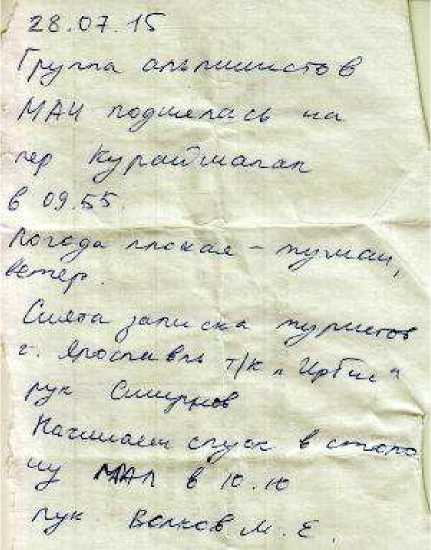 28.07.15
Группа альпинистов
МАИ поднялась на
пер Курайташпап
в 09.55.
Погода плохая - туман,
ветер.
Снята записка туристов
г. Ярославль т/к "Ирбис"
рук Смирнов
Начинаем спуск в сторо
ну МАЛ в 10.10
рук. Волков М. Е.